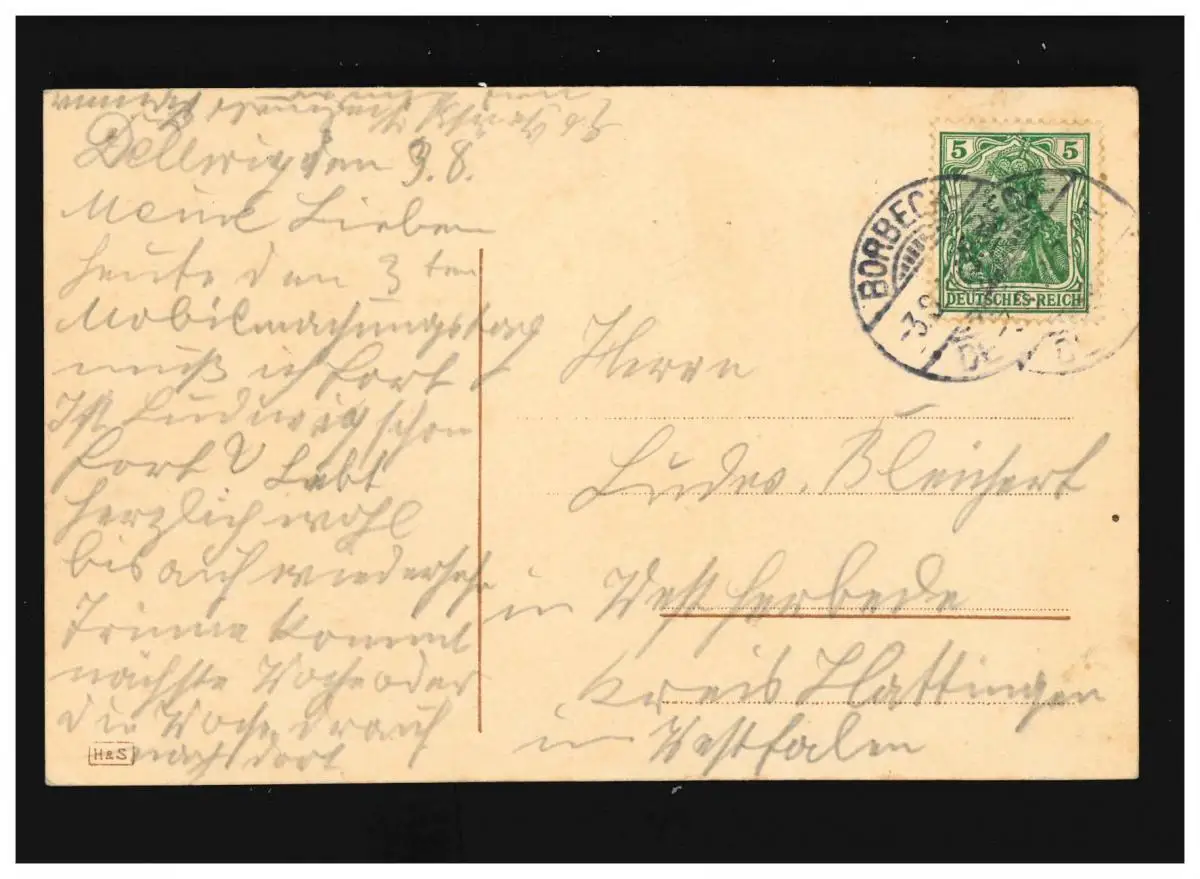 Dellwig den 3.8.
Meine Lieben
heute den 3ten
Mobilmachungstag
muß ich fort
Ist Ludwig schon
fort? Lebt
herzlich wohl
bis auf wiedersehn
kommt
nächste Woche oder
die Woche drauf
nach dort
H&S
5 5
DEUTSCHES REICH
BORBECK
Herrn
Ludw. Bleichert
in Westherbede
Kreis Hattingen
in Westfalen